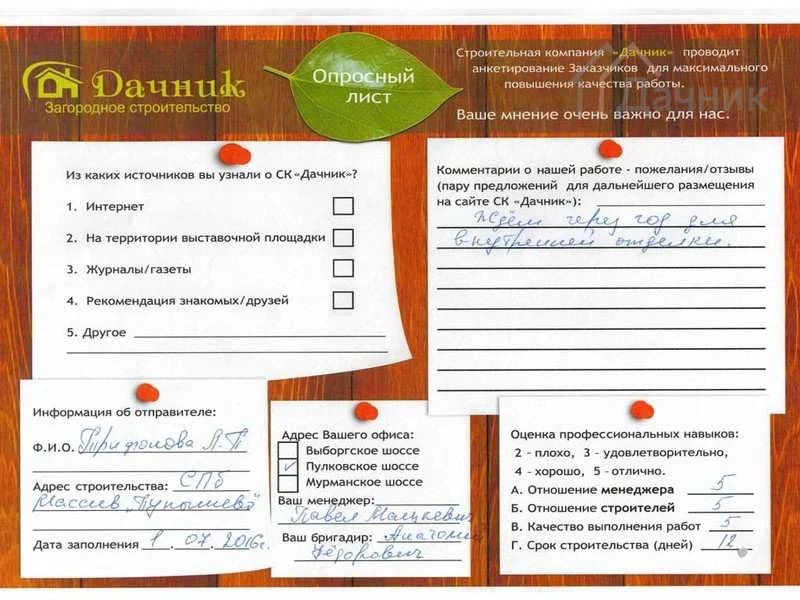 Дачник
Загородное строительство
Опросный
лист
Строительная компания «Дачник» проводит
анкетирование Заказчиков для максимального
повышения качества работы.
Ваше мнение очень важно для нас.
Дачник
Из каких источников вы узнали о СК «Дачник»?
1. Интернет
2. На территории выставочной площадки
3. Журналы/газеты
4. Рекомендация знакомых/друзей
5. Другое
Комментарии о нашей работе - пожелания/отзывы
(пару предложений для дальнейшего размещения
на сайте СК «Дачник»):
Ждём через год для
внутренней отделки.
Информация об отправителе:
Ф.И.О. Трифонова Л.П
Адрес строительства: СПб
Массив "Тупышево"
Дата заполнения 1 . 07 . 2016г.
Адрес Вашего офиса:
Выборгское шоссе
✓ Пулковское шоссе
Мурманское шоссе
Ваш менеджер:
Павел Мацкевич
Ваш бригадир: Анатолий
Фёдорович
Оценка профессиональных навыков:
2 - плохо, 3 - удовлетворительно,
4 - хорошо, 5 - отлично.
А. Отношение менеджера 5
Б. Отношение строителей 5
В. Качество выполнения работ 5
Г. Срок строительства (дней) 12